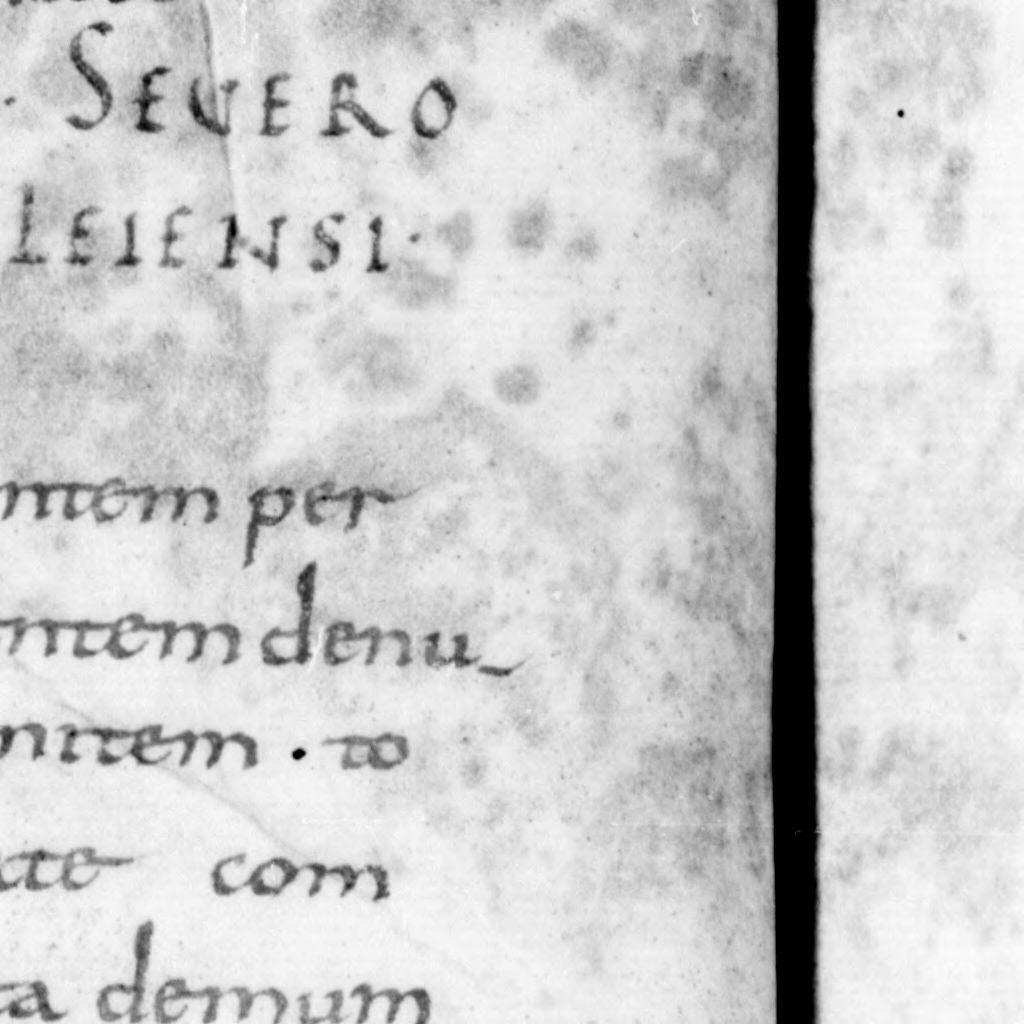 · SEVERO
LEIENSI·
ntem per
ntem denu
nitem · to
cte com
ta demum